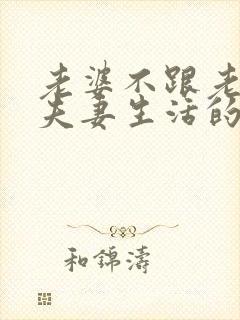 老婆不跟老
夫妻生活的
和錦濤